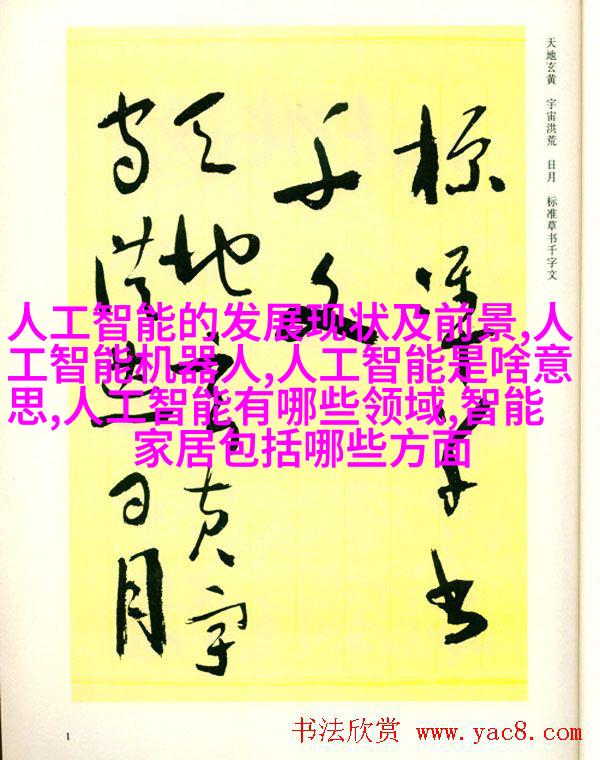 天地玄黄 宇宙洪荒 日月 标准草书千字文
标准草书
千文
天地玄黄宇
宙洪荒日月
人工智能的发展现状及前景,人
工智能机器人,人工智能是啥意
思,人工智能有哪些领域,智能
家居包括哪些方面
1
书法欣赏 www.yac8.com